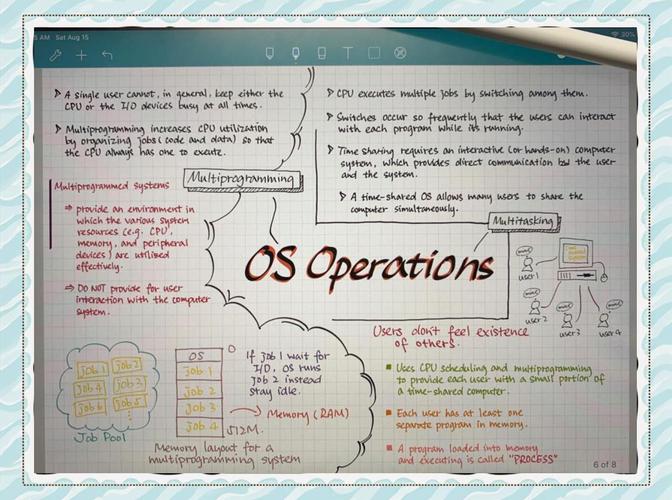 AM Sat Aug 15
30%
▷ A single user cannot, in general, keep either the
CPU or the I/O devices busy at all times.
▷ Multiprogramming increases CPU utilization
by organizing jobs (code and data) so that
the CPU always has one to execute.
Multiprogramming
Multiprogrammed systems
⇒ provide an environment in
which the various system
resources (e.g. CPU,
memory, and peripheral
devices) are utilized
effectively.
⇒ DO NOT provide for user
interaction with the computer
system.
▷ CPU executes multiple jobs by switching among them.
▷ Switches occur so frequently that the users can interact
with each program while its running.
▷ Time sharing requires an interactive (or hands-on) computer
system, which provides direct communication b/w the user
and the system.
▷ A time-shared OS allows many users to share the
computer simultaneously.
Multitasking
OS Operations
user 1
user 2
user 3
user 4
Users don't feel existence
of others.
Job 1
Job 2
Job 4
Job 3
Job 6
Job 5
Job Pool
OS
Job 1
Job 2
Job 3
Job 4
0
512M
Memory (RAM)
If job 1 wait for
I/O, OS runs
Job 2 instead
stay idle.
Memory layout for a
multiprogramming system
■ Uses CPU scheduling and multiprogramming
to provide each user with a small portion of
a time-shared computer.
■ Each user has at least one
separate program in memory.
■ A program loaded into memory
and executing is called "PROCESS"
6 of 8